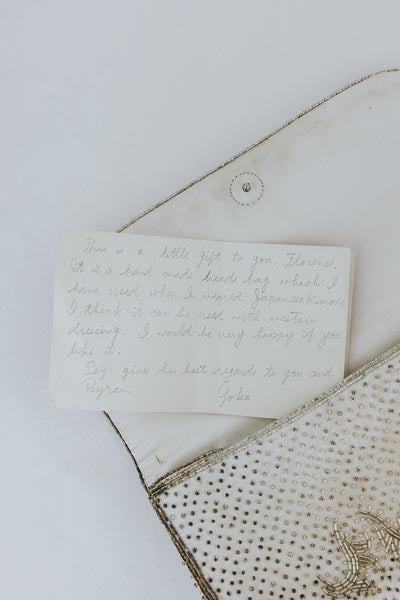 This is a little gift to you, Florence.
It is a hand made beads bag which I
have used when I weared Japanese Kimono.
I think it can be used with western
dressing. I would be very happy if you
like it.
Seiji gives his best regards to you and
Byron. Yoko